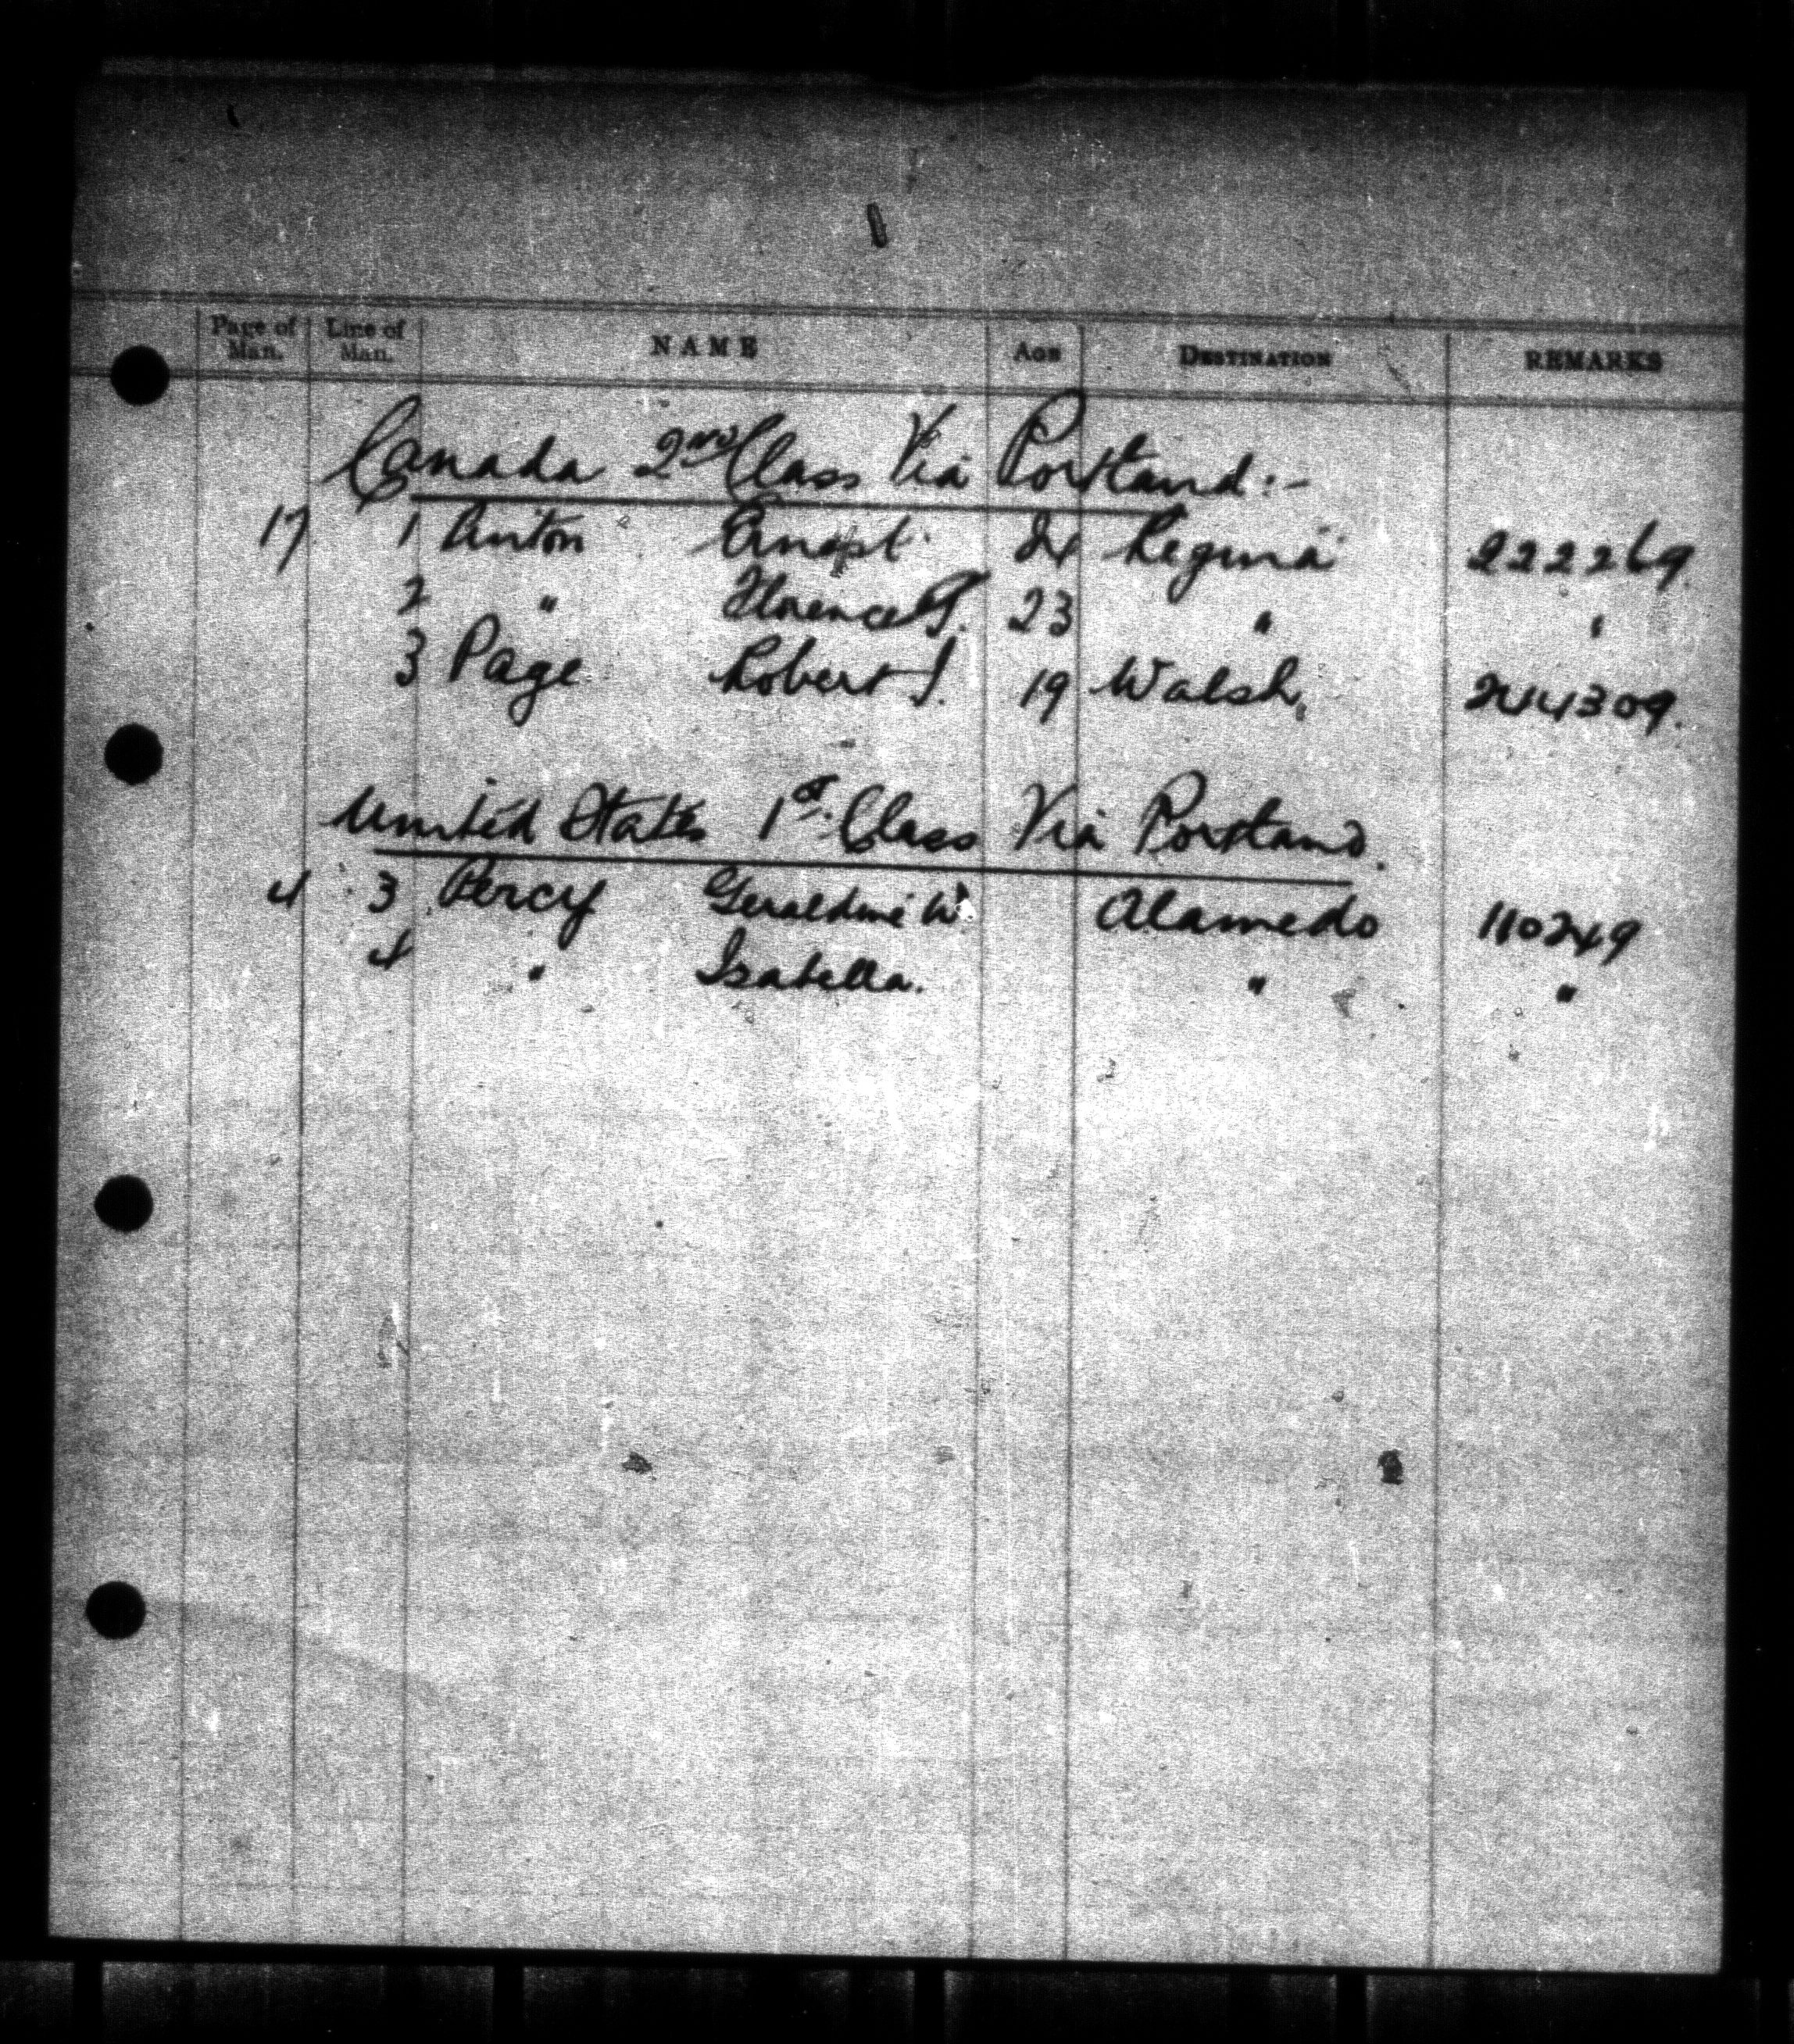 Page of Man. Line of Man. NAME AGE DESTINATION REMARKS
Canada 2nd Class Via Portland:-
17 1 Anton Ernest 24 Regina 222269.
2 " Florence T. 23 " "
3 Page Robert J. 19 Walsh, 244309.
United States 1st Class Via Portland.
4 3 Percy Geraldine W. Alamedo 110249
4 " Isabella. " "